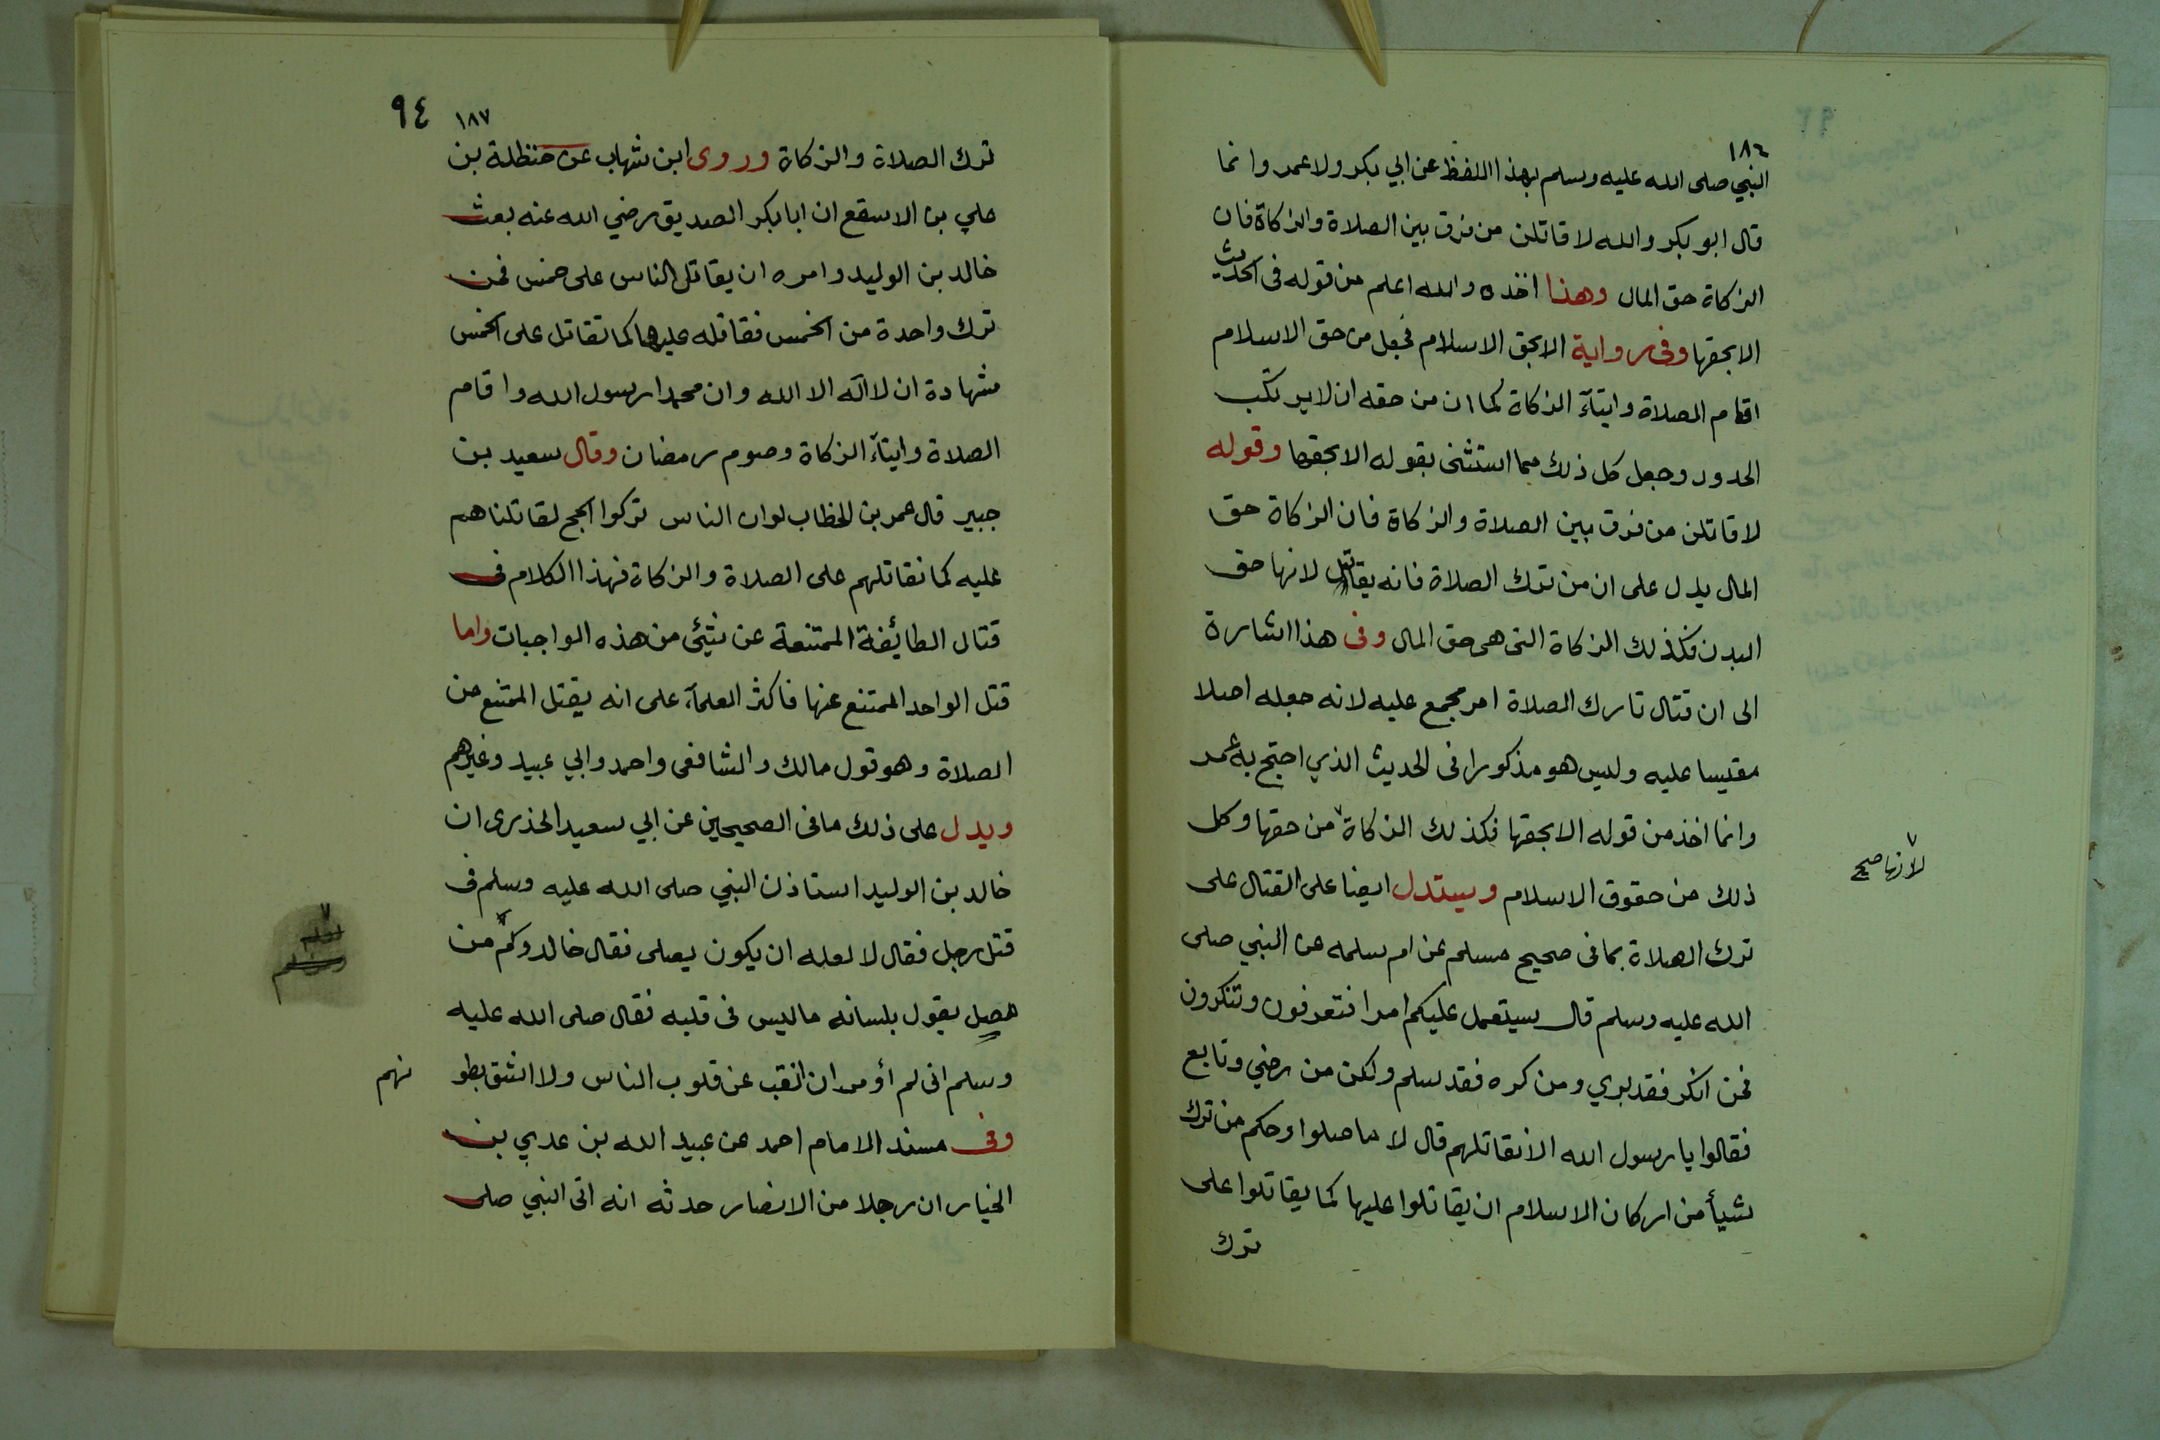 ١٨٦
النبي صلى الله عليه وسلم بهذا اللفظ عن ابي بكر ولا عمر وانما
قال ابو بكر والله لاقاتلن من فرق بين الصلاة والزكاة فان
الزكاة حق المال وهذا اخذه والله اعلم من قوله فى الحديث
الا بحقها وفى رواية الا بحق الاسلام فجعل من حق الاسلام
اقام الصلاة وايتآء الزكاة كما ان من حقه ان لا يرتكب
الحدود وجعل كل ذلك مما استثنى بقوله الا بحقها وقوله
لاقاتلن من فرق بين الصلاة والزكاة فان الزكاة حق
المال يدل على ان من ترك الصلاة فانه يقاتل لانها حق
البدن فكذلك الزكاة التى هى حق المال وفى هذا اشارة
الى ان قتال تارك الصلاة امر مجمع عليه لانه جعله اصلا
مقيسا عليه وليس هو مذكورا فى الحديث الذي احتج به عمر
وانما اخذ من قوله الا بحقها فكذلك الزكاة ٧ من حقها وكل
٧ لانها صح
ذلك من حقوق الاسلام ويستدل ايضا على القتال على
ترك الصلاة بما فى صحيح مسلم عن ام سلمه عن النبي صلى
الله عليه وسلم قال سيتعمل عليكم امرا فتعرفون وتنكرون
فمن انكر فقد بري ومن كره فقد سلم ولكن من رضي وتابع
فقالوا يا رسول الله الا نقاتلهم قال لا ما صلوا وحكم من ترك
شيأ من اركان الاسلام ان يقاتلوا عليها كما يقاتلوا على
ترك
٩٤ ١٨٧
ترك الصلاة والزكاة وروى ابن شهاب عن حنظلة بن
علي بن الاسقع ان ابا بكر الصديق رضي الله عنه بعث
خالد بن الوليد وامره ان يقاتل الناس على خمس فمن
ترك واحدة من الخمس فقاتله عليها كما تقاتل على الخمس
شهادة ان لا اله الا الله وان محمدا رسول الله واقام
الصلاة وايتآء الزكاة وصوم رمضان وقال سعيد بن
جبير قال عمر بن الخطاب لو ان الناس تركوا الحج لقاتلناهم
عليه كما نقاتلهم على الصلاة والزكاة فهذا الكلام فى
قتال الطائفة الممتنعة عن شيئ من هذه الواجبات واما
قتل الواحد الممتنع عنها فاكثر العلمآء على انه يقتل الممتنع من
الصلاة وهو قول مالك والشافعى واحمد وابي عبيد وغيرهم
ويدل على ذلك ما فى الصحيحين عن ابي سعيد الخذرى ان
خالد بن الوليد استاذن النبي صلى الله عليه وسلم فى
قتل رجل فقال لا لعله ان يكون يصلى فقال خالد وكم من
مصل يقول بلسانه ما ليس فى قلبه فقال صلى الله عليه
وسلم انى لم أؤمر ان انقب عن قلوب الناس ولا اشق بطو نهم
وفى مسند الامام احمد عن عبيد الله بن عدي بن
الخيار ان رجلا من الانصار حدثه انه اتى النبي صلى